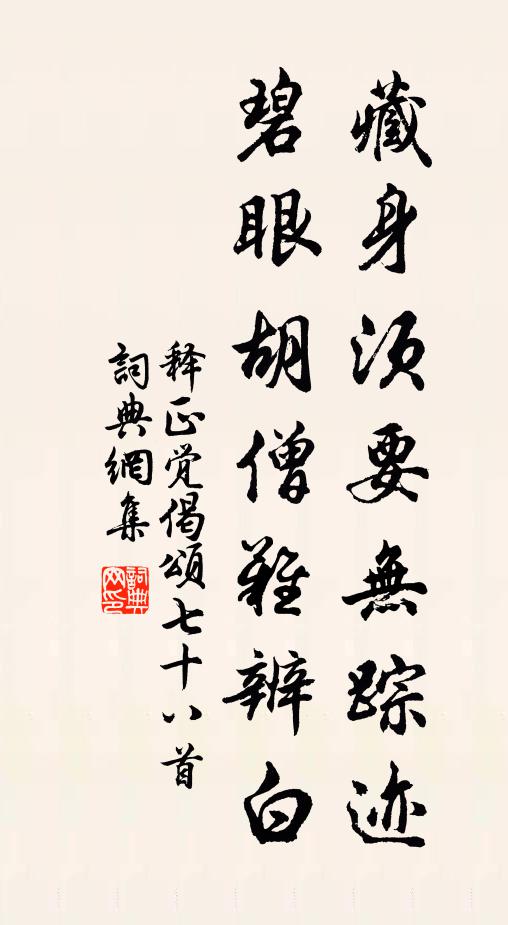 藏身须要無踪迹
碧眼胡僧難辨白
释正觉偈頌七十八首
詞典網集
詞典網印